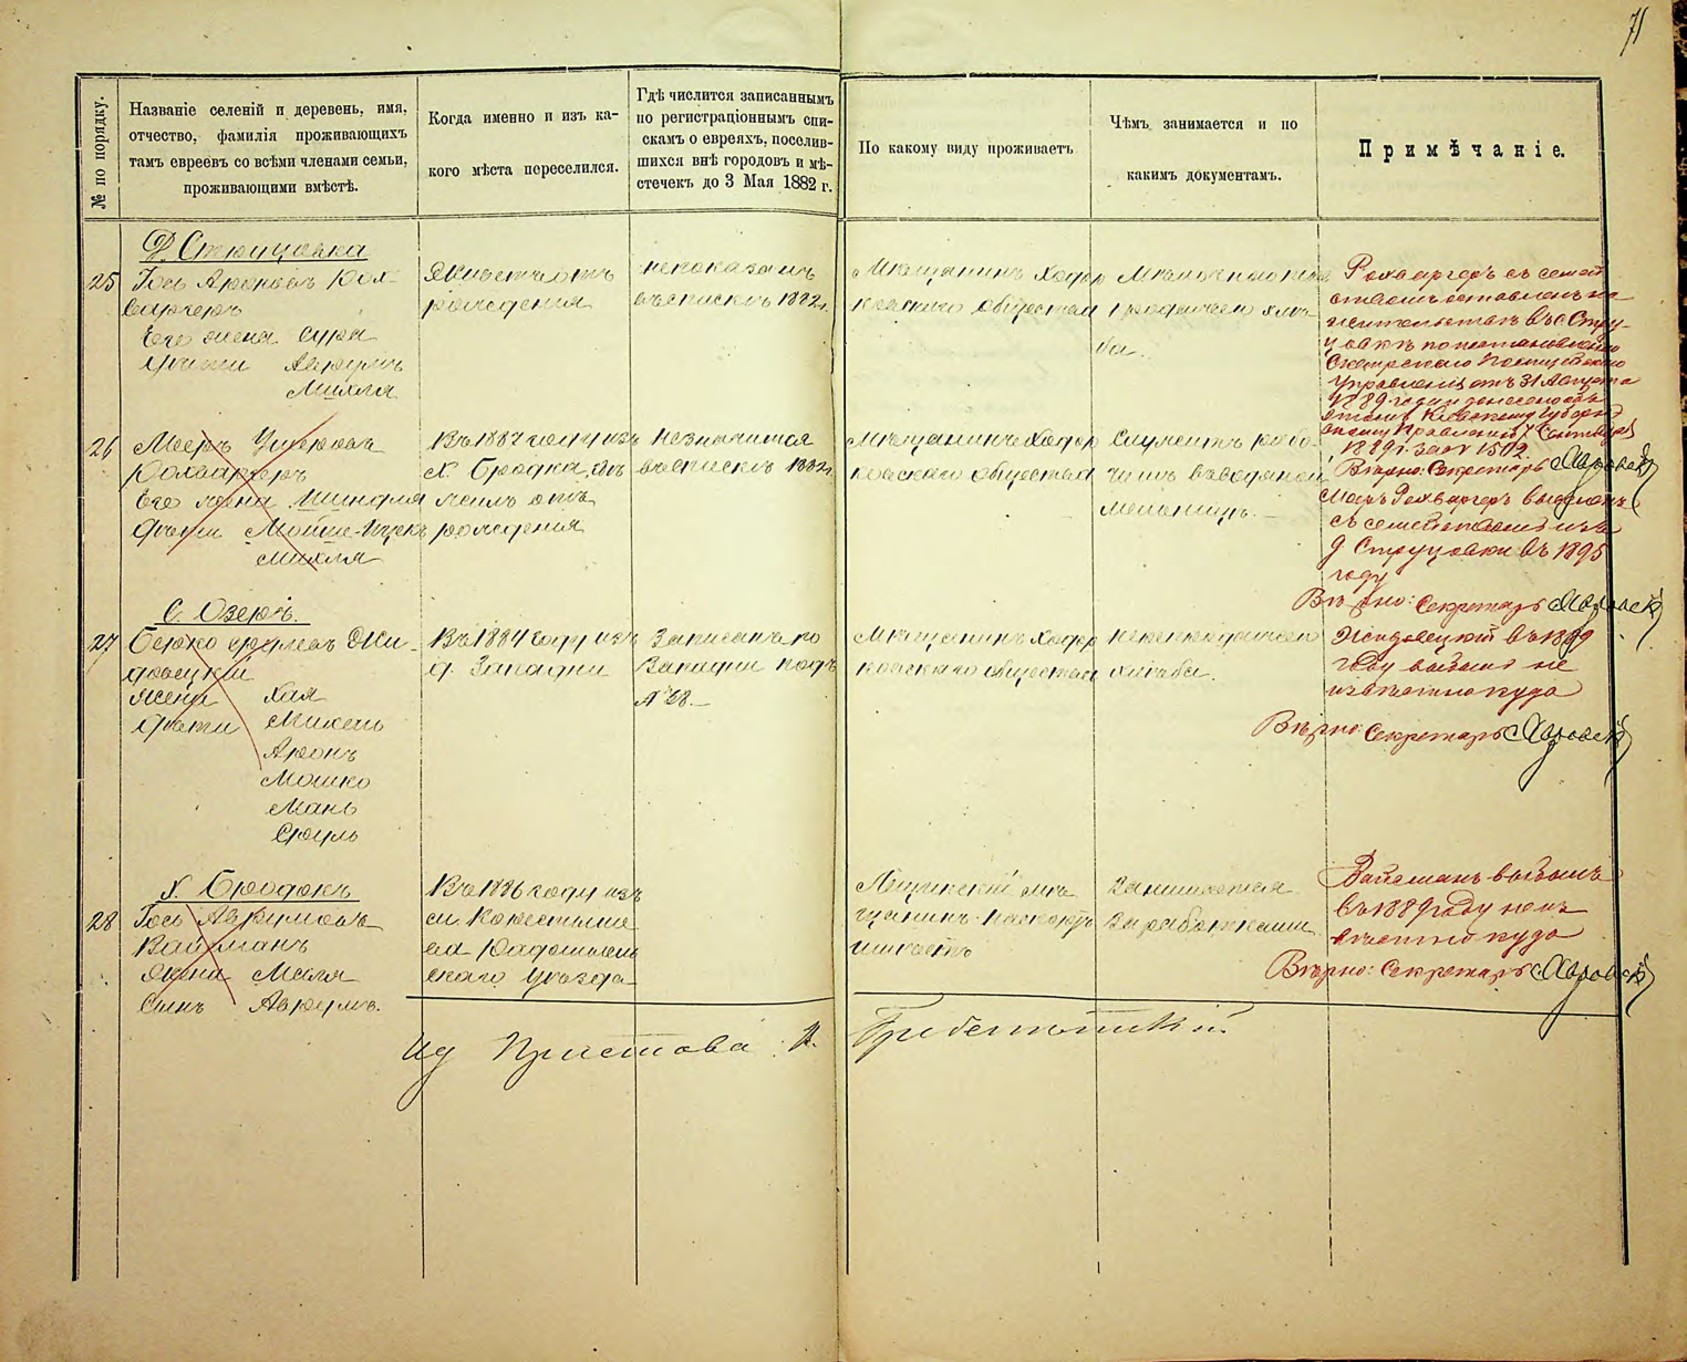 71
№ по порядку.
Названіе селеній и деревень, имя,
отчество, фамилія проживающихъ
тамъ евреевъ со всѣми членами семьи,
проживающими вмѣстѣ.
Когда именно и изъ ка-
кого мѣста переселился.
Гдѣ числится записаннымъ
по регистраціоннымъ спи-
скамъ о евреяхъ, поселив-
шихся внѣ городовъ и мѣ-
стечекъ до 3 Мая 1882 г.
По какому виду проживаетъ
Чѣмъ занимается и по
какимъ документамъ.
Примѣчаніе.
Д. Струцовка
25
Гось Ароновъ Рох-
варгеръ
Его жена Сура
Дѣти Аврумъ
Михля
Живетъ отъ
рожденія
непоказанъ
въ спискѣ 1882 г.
Мѣщанинъ Ходор
ковскаго общества
продажею хлѣ-
ба.
Рохваргеръ съ семей
ствомъ оставленъ на
жительствѣ въ с. Стру-
цовкѣ по постановленію
Сквирскаго Полицейскаго
Управленія отъ 31 Августа
1889 года и донесено объ
этомъ Кіевскому Губерн
скому Правленію 7 Сентября
1889 г. за № 1502.
Вѣрно: Секретарь
26
Мееръ
Рохваргеръ
Его жена Шиндля
Дѣти Мойше-Ицекъ
Михля
Въ 1887 году изъ
х. Бродка, гдѣ
жилъ отъ
рожденія
Незначится
въ спискѣ 1882 г.
Мѣщанинъ Ходор
ковскаго общества
Служитъ рабо-
чимъ въ водяной
мельницѣ.
Меръ Рохваргеръ выселенъ
съ семействомъ изъ
д Струцовки въ 1895
году
Вѣрно: Секретарь
С. Озеръ.
27
Берко Фроимовъ Жи-
довецкій
Жена Хая
Дѣти Михель
Аронъ
Мошко
Мань
Сруль
Въ 1884 году изъ
д. Западни
Записанъ по
Западни подъ
№ 28.
Мѣщанинъ Ходор
ковскаго общества
печеніе
хлѣба.
Жидовецкій въ 1889
году выбылъ не
извѣстно куда
Вѣрно: Секретарь
х. Бродокъ
28
Гось Аврумовъ
Вайсманъ
Жена Маля
Сынъ Аврумъ.
Въ 1886 году изъ
м. Коростыше
ва Радомысль
скаго уѣзда
мѣ
щанинъ паспортъ
Занимается
заработками
Вайсманъ выбылъ
въ 1889 году неиз
вѣстно куда
Вѣрно: Секретарь
Ид Пристава